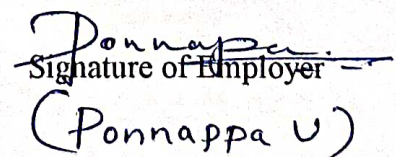 Ponnapa.
Signature of Employer
(Ponnappa U)